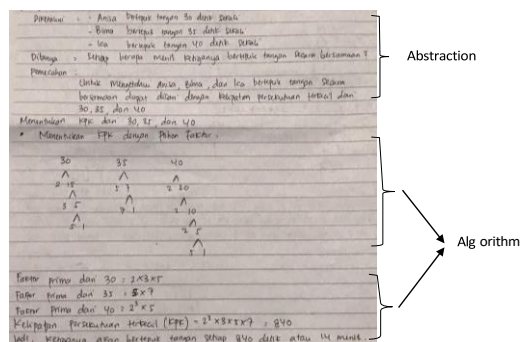 Diketahui : - Anisa bertepuk tangan 30 detik sekali
- Bima bertepuk tangan 35 detik sekali
- Ica bertepuk tangan 40 detik sekali
Ditanya : Setiap berapa menit ketiganya bertepuk tangan secara bersamaan ?
Pemecahan :
Untuk mengetahui Anisa, Bima, dan Ica bertepuk tangan secara
bersamaan dapat dicari dengan kelipatan persekutuan terkecil dari
30, 35, dan 40
Menentukan KPK dari 30, 35, dan 40
• Menentukan KPK dengan Pohon faktor.
30 35 40
2 15 5 7 2 20
3 5 7 1 2 10
5 1 2 5
5 1
Faktor prima dari 30 : 2x3x5
Faktor prima dari 35 : 5x7
Faktor prima dari 40 : 2³x5
Kelipatan persekutuan terkecil (KPK) = 2³x3x5x7 : 840
Jadi, ketiganya akan bertepuk tangan setiap 840 detik atau 14 menit.
Abstraction
Alg orithm